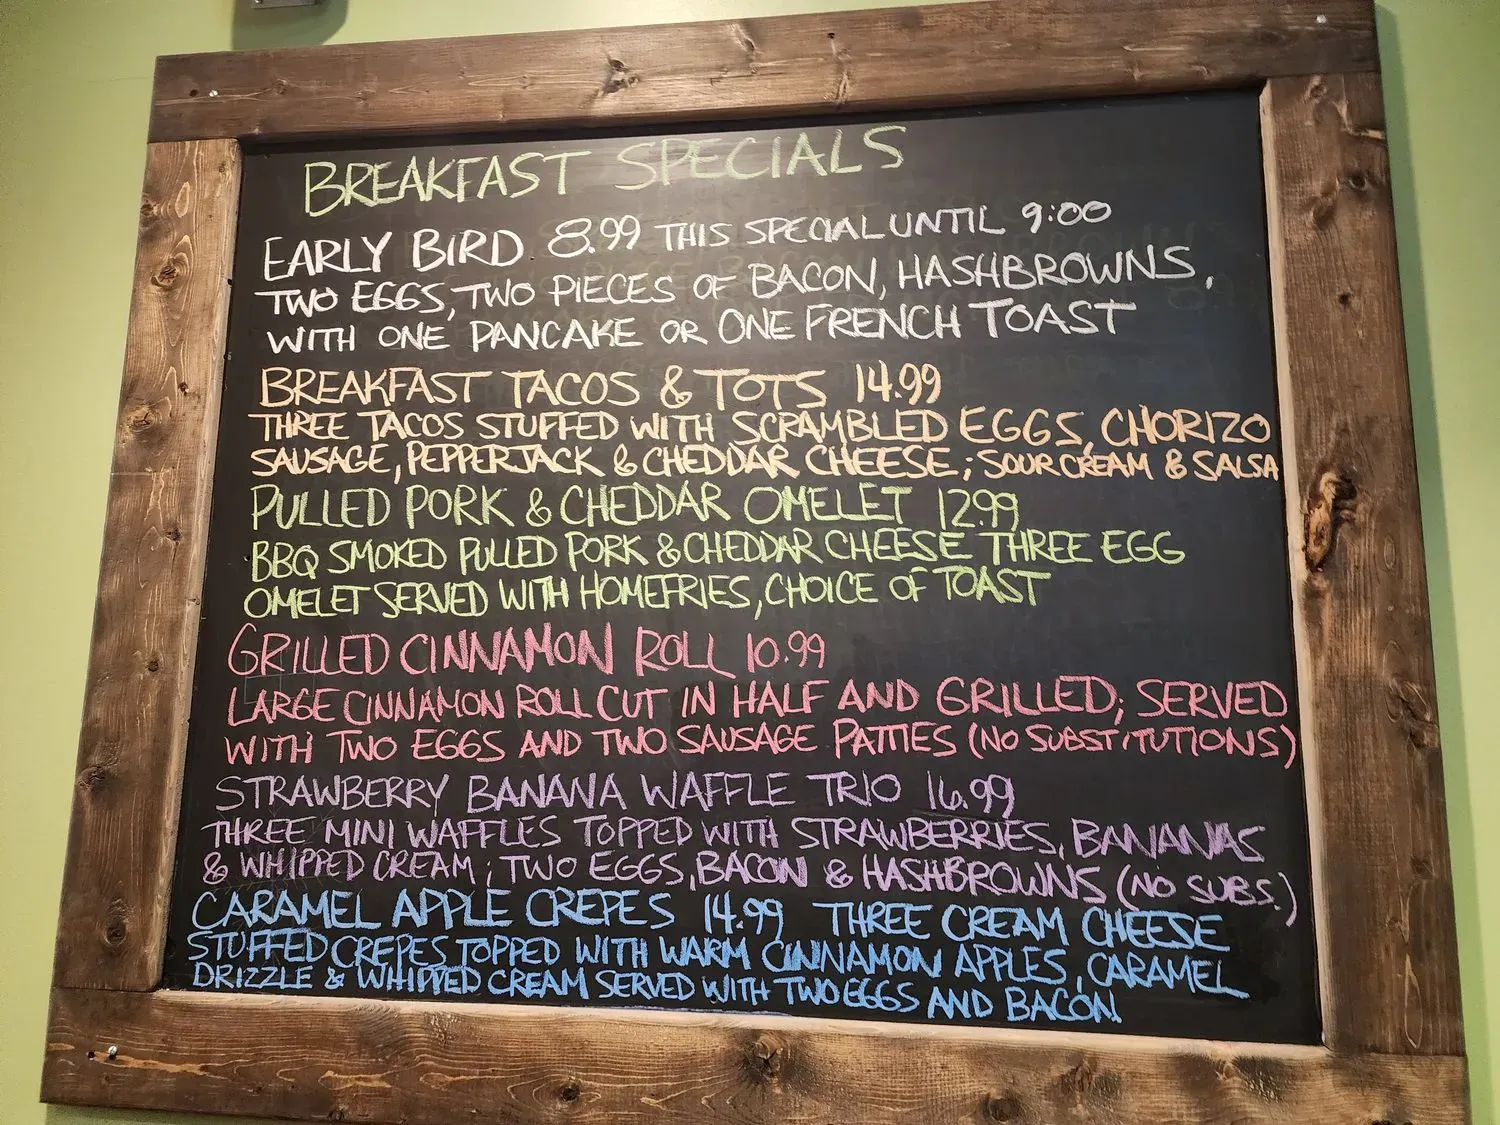 BREAKFAST SPECIALS
EARLY BIRD 8.99 THIS SPECIAL UNTIL 9:00
TWO EGGS, TWO PIECES OF BACON, HASHBROWNS,
WITH ONE PANCAKE OR ONE FRENCH TOAST
BREAKFAST TACOS & TOTS 14.99
THREE TACOS STUFFED WITH SCRAMBLED EGGS, CHORIZO
SAUSAGE, PEPPERJACK & CHEDDAR CHEESE; SOUR CREAM & SALSA
PULLED PORK & CHEDDAR OMELET 12.99
BBQ SMOKED PULLED PORK & CHEDDAR CHEESE THREE EGG
OMELET SERVED WITH HOMEFRIES, CHOICE OF TOAST
GRILLED CINNAMON ROLL 10.99
LARGE CINNAMON ROLL CUT IN HALF AND GRILLED; SERVED
WITH TWO EGGS AND TWO SAUSAGE PATTIES (NO SUBSTITUTIONS)
STRAWBERRY BANANA WAFFLE TRIO 16.99
THREE MINI WAFFLES TOPPED WITH STRAWBERRIES, BANANAS
& WHIPPED CREAM; TWO EGGS, BACON & HASHBROWNS (NO SUBS.)
CARAMEL APPLE CREPES 14.99 THREE CREAM CHEESE
STUFFED CREPES TOPPED WITH WARM CINNAMON APPLES, CARAMEL
DRIZZLE & WHIPPED CREAM SERVED WITH TWO EGGS AND BACON!